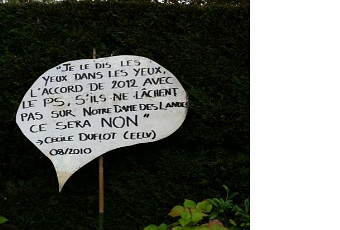 "JE LE DIS LES
YEUX DANS LES YEUX,
L'ACCORD DE 2012 AVEC
LE PS, S'ILS NE LÂCHENT
PAS SUR NOTRE DAME DES LANDES
CE SERA NON"
→ CÉCILE DUFLOT (EELV)
08/2010